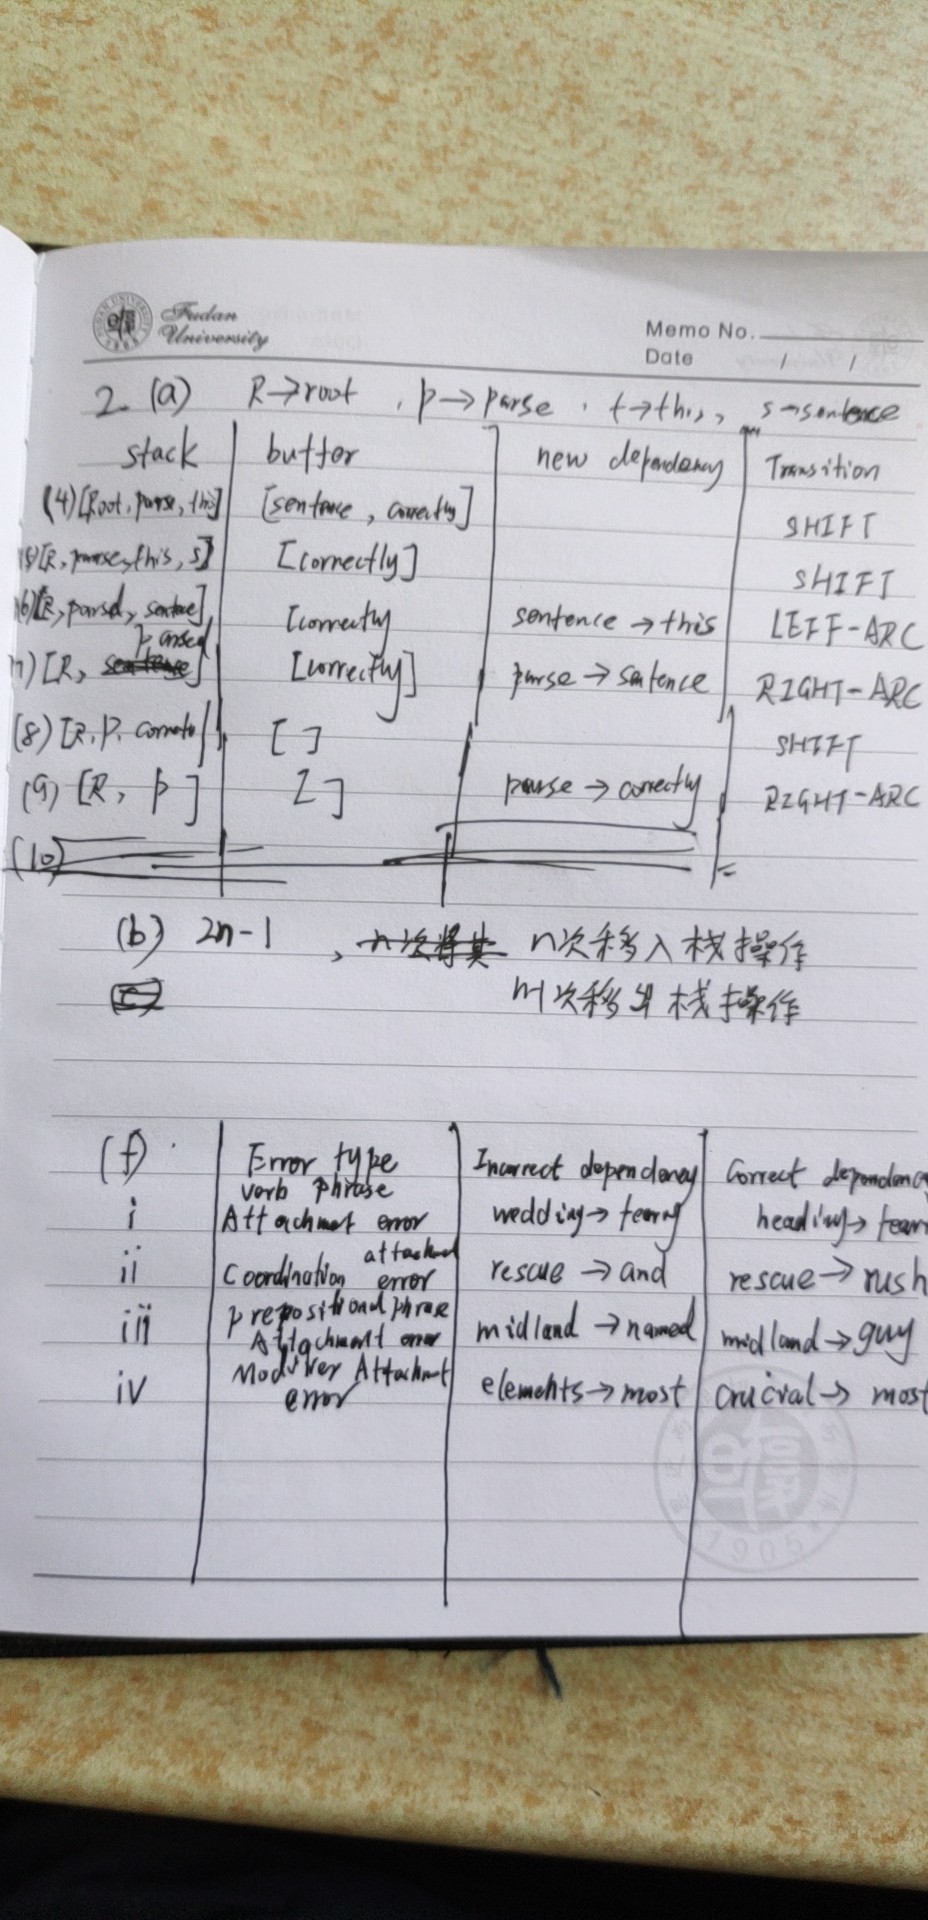 Fudan University
Memo No.
Date / /
2. (a) R→root , p→parse , t→this, s→sentence
stack buffer new dependency Transition
(4) [Root, parse, this] [sentence, correctly] SHIFT
[R, parse, this, s] [correctly] SHIFT
[R, parsed, sentence] [correctly sentence→this LEFF-ARC
parsed
[R, ] [correctly] parse→sentence RIGHT-ARC
(8) [R, P, [ ] SHIFT
(9) [R, p] [ ] parse→correctly RIGHT-ARC
(10)
(b) 2n-1 , n次将其 n次移入栈操作
(c) 次移出栈操作
(f) Error type Incorrect dependency Correct dependency
i verb phrase Attachment error wedding→fearing heading→fear
ii Coordination attachment error rescue→and rescue→rush
iii prepositional phrase Attachment error midland→named midland→guy
iv Modifier Attachment error elements→most crucial→most
1905